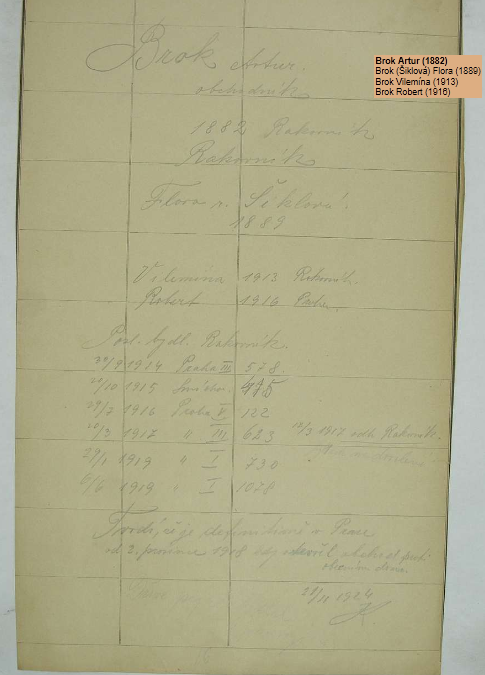 Brok Artur (1882)
Brok (Šiklová) Flora (1889)
Brok Vilemína (1913)
Brok Robert (1916)
Brok Artur.
obchodník
1882 Rakovník
Rakovník
Flora r. Šiklová.
1889
Vilemína 1913 Rakovník.
Robert 1916 Praha.
Posl. bydl. Rakovník.
1914 Praha III 578.
/10 1915 Smíchov 475
29/7 1916 Praha V 122
/3 1917 " III 623 /3 1917 odh. Rakovník.
29/1 1919 " I 730
6/6 1919 " I 1078
Tvrdí, že je definitivně v Praze
od 2. prosince 1918 kdy otevřel obchod
21/11 1924
K.